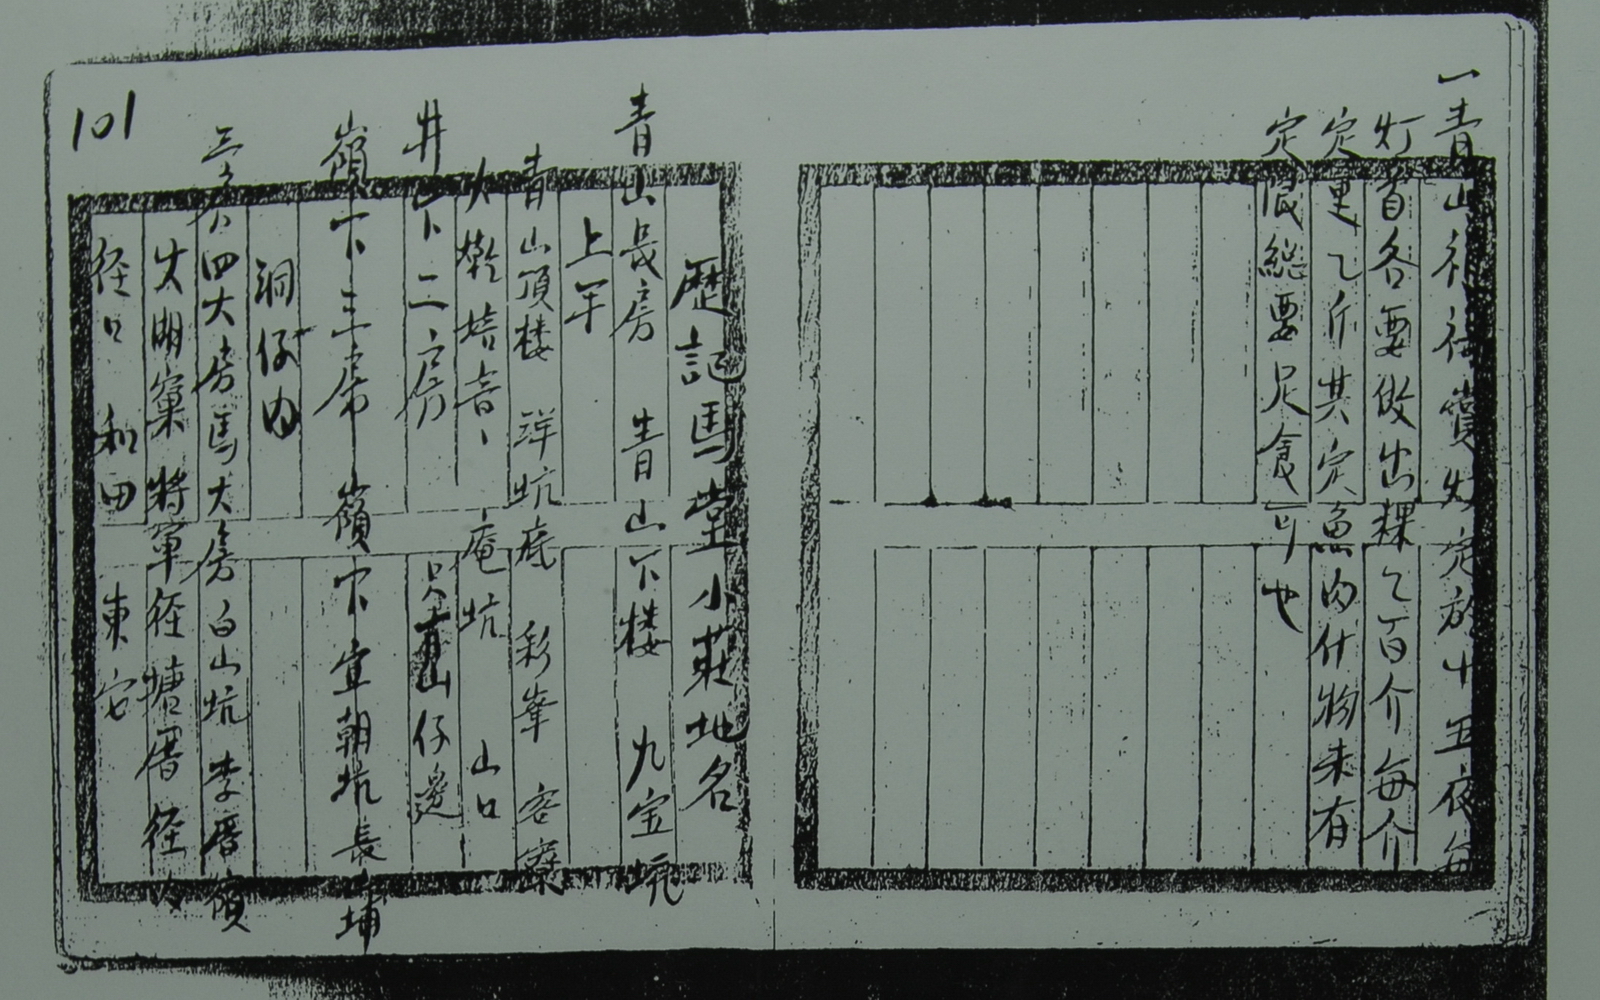 一青山福德賞灯定於十五夜每
灯首各要做出粿乙百介每介
定重乙斤其定魚肉什物未有
定限総要足食可也
歷記馬堂小莊地名
青山長房 青山下楼 九宝坑
上年
青山頂楼 洋坑底 彩峯 客寮
火乾培音、庵坑 山口
井下二房 山仔邊
嶺下三房 嶺下 宜朝坑 長埔
洞仔内
三房四大房馬大房 白山坑 李厝嶺
火明窠 將軍径 塘厝径
径口 和田 東安
101